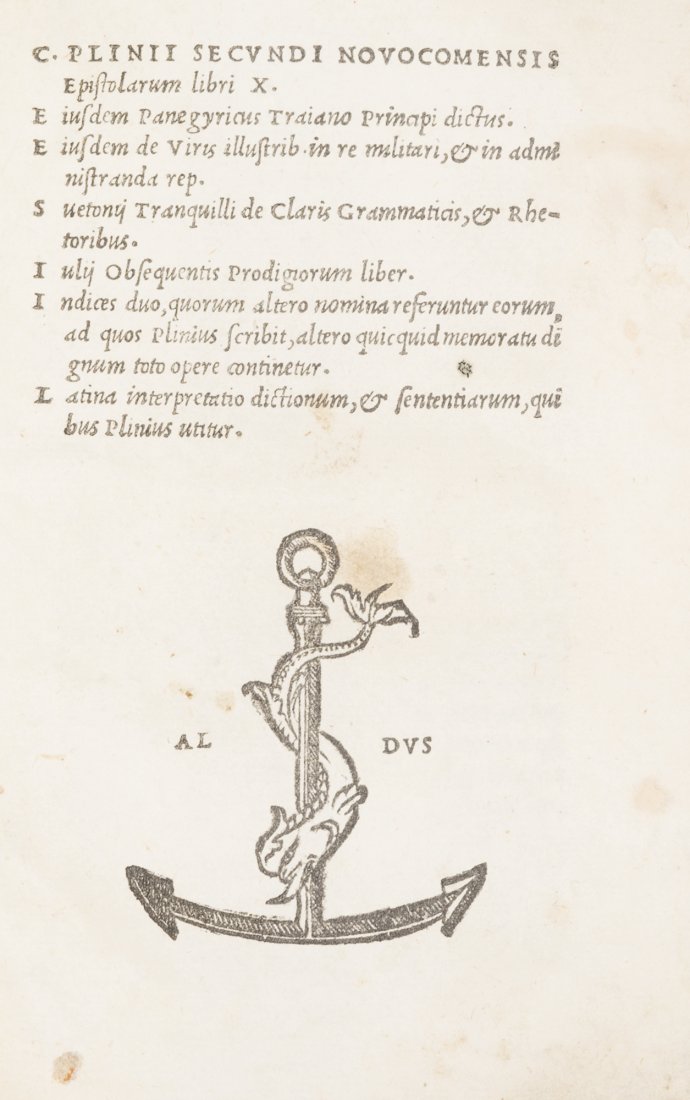 C. PLINII SECVNDI NOVOCOMENSIS
Epiſtolarum libri X.
E iuſdem Panegyricus Traiano Principi dictus.
E iuſdem de Viris illuſtrib. in re militari, & in admi
niſtranda rep.
S uetonij Tranquilli de Claris Grammaticis, & Rhe-
toribus.
I ulij Obſequentis Prodigiorum liber.
I ndices duo, quorum altero nomina referuntur eorum,
ad quos Plinius ſcribit, altero quicquid memoratu di
gnum toto opere continetur.
L atina interpretatio dictionum, & ſententiarum, qui
bus Plinius utitur.
AL DVS